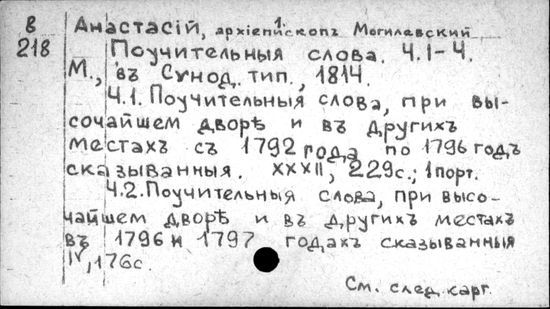 В
218
Анастасій, архіепископъ Могилевский
1.
Поучительныя слова. Ч.1-4.
М., въ Сунод. тип., 1814.
Ч.1. Поучительныя слова, при вы-
сочайшем дворѣ и въ других
местахъ съ 1792 года по 1796 годъ
сказыванныя. XXXII, 229с.; 1 порт.
Ч.2. Поучительныя слова, при высо-
чайшем дворѣ и въ другихъ местах
въ 1796 и 1797 годахъ сказыванныя
IV, 176с.
См. след. карт.